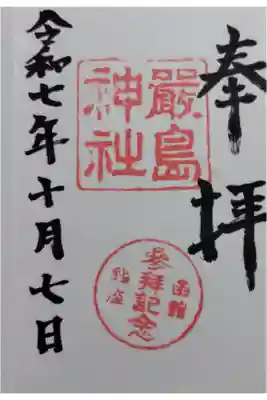 奉拝
嚴島
神社
函館
参拝記念
鎮座
令和七年十月七日